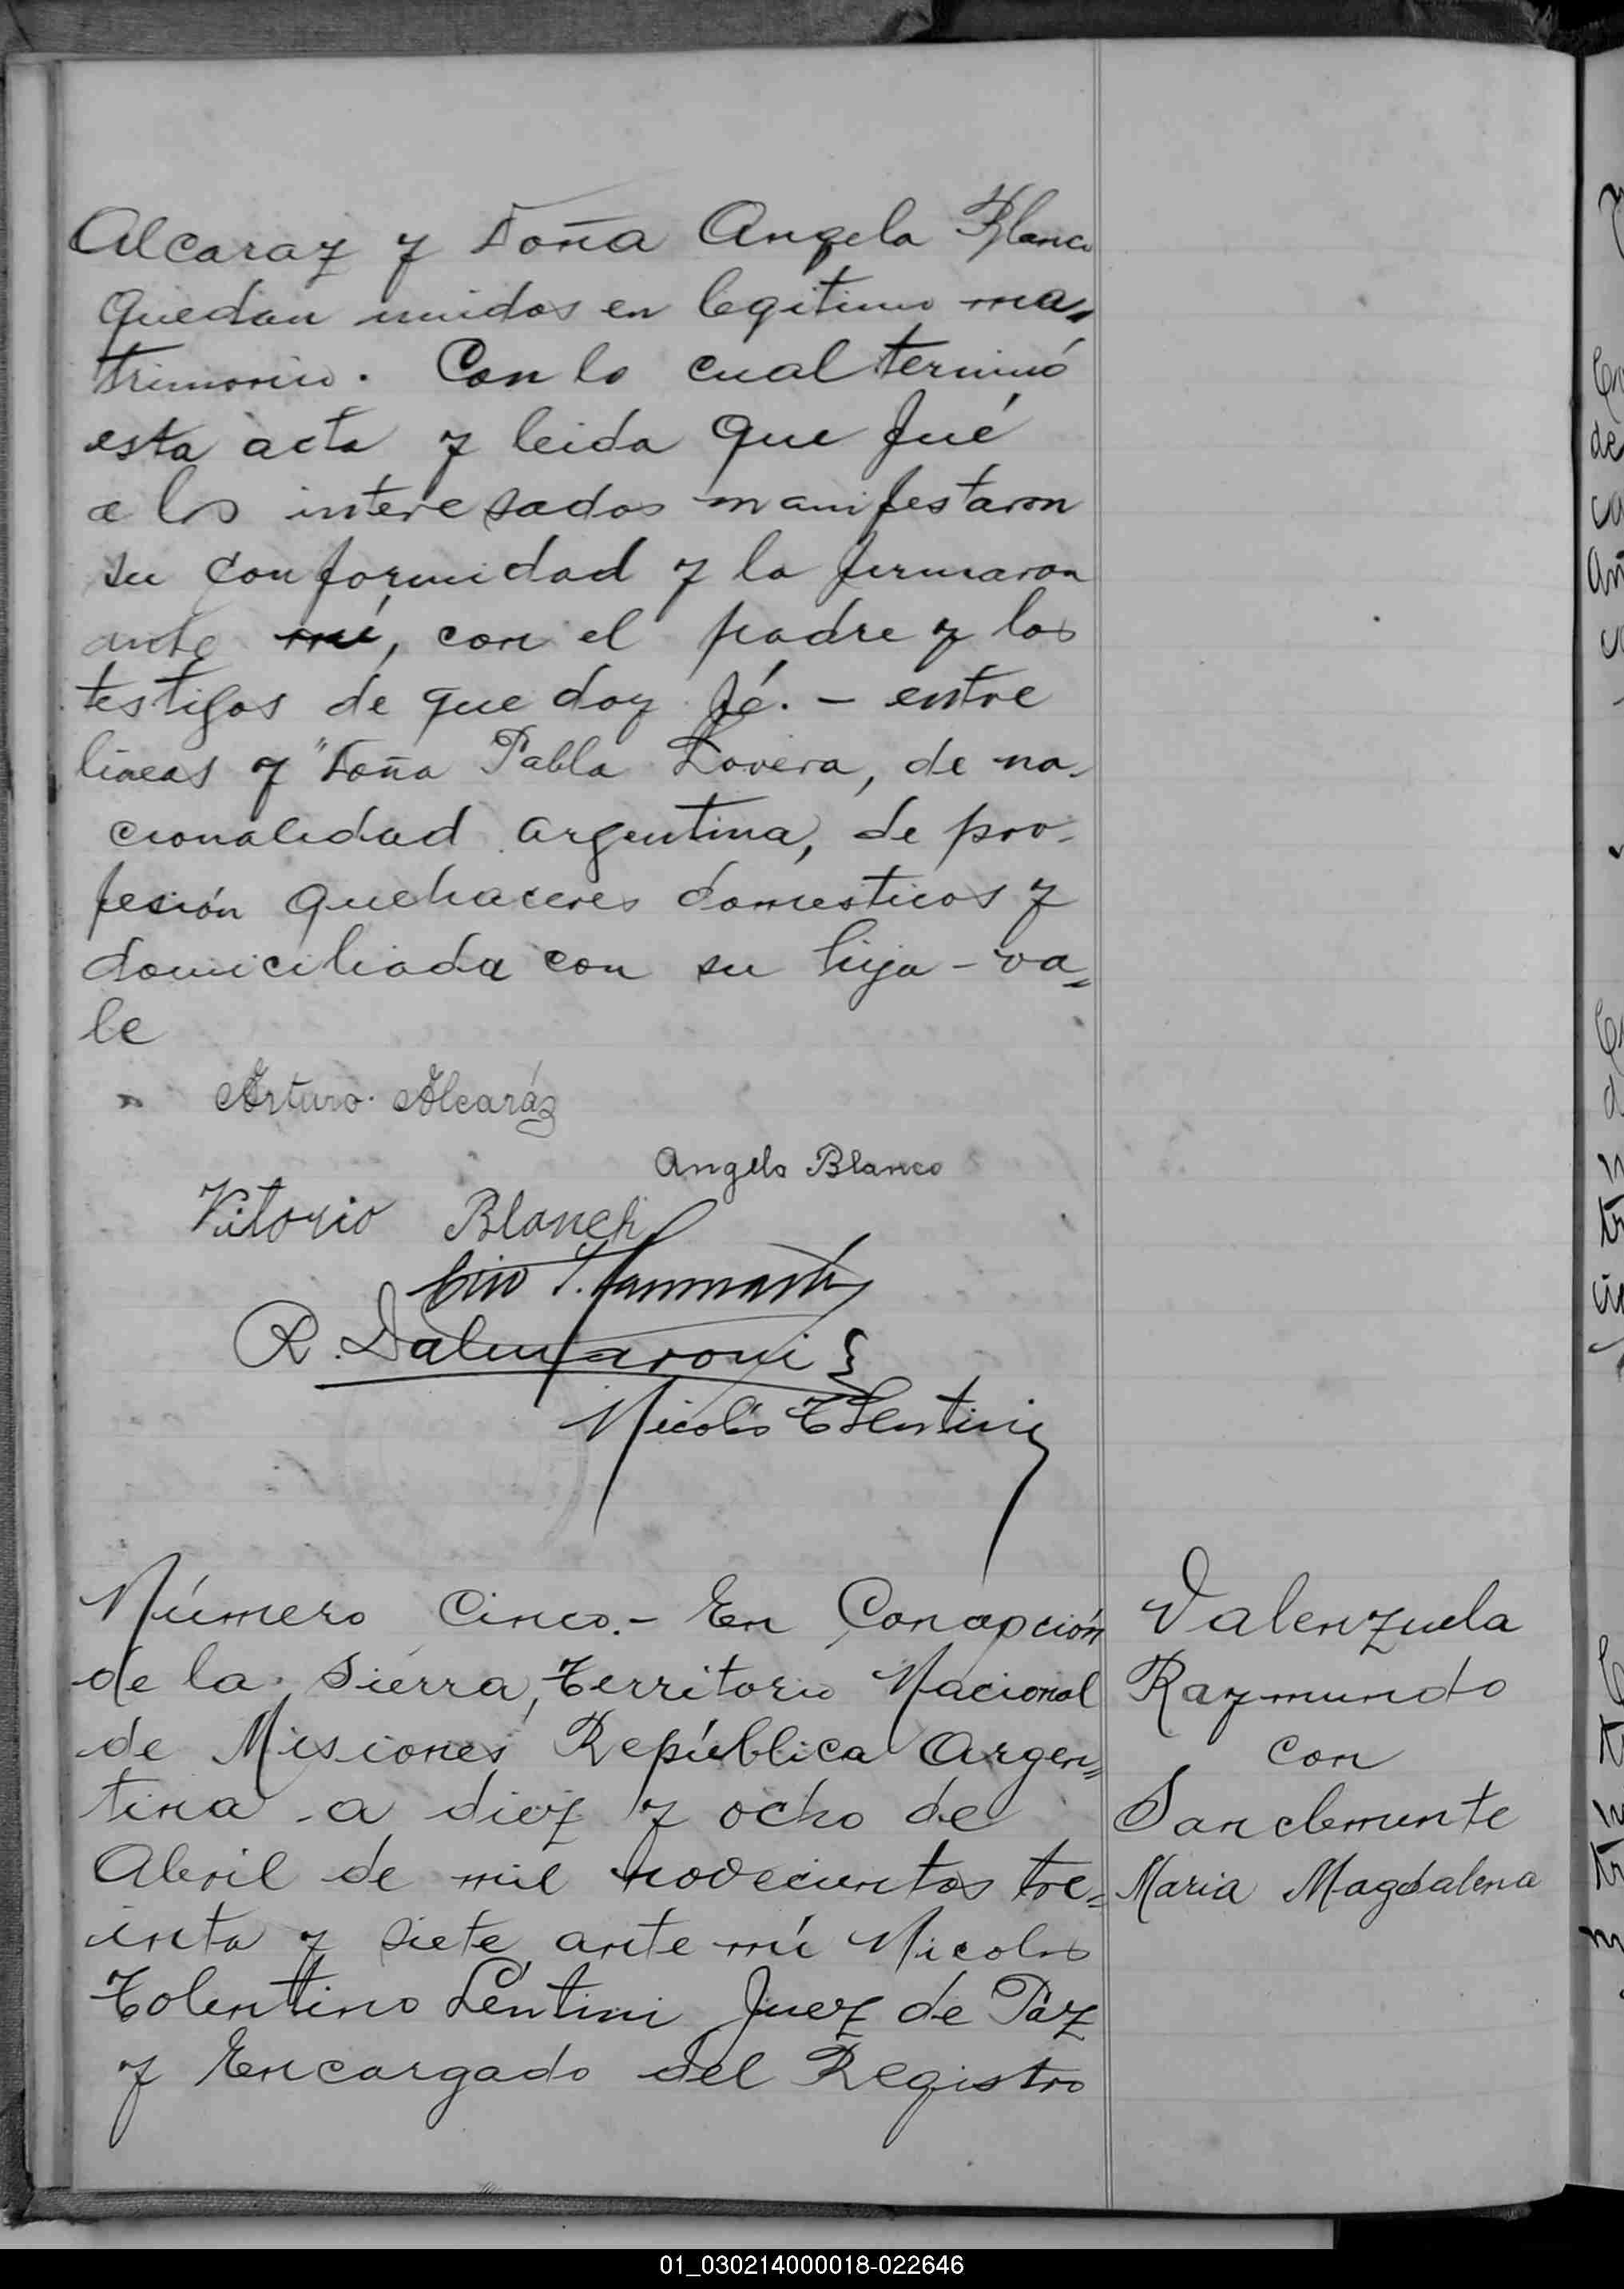 Alcaraz y Doña Angela Blanco
quedan unidos en legitimo ma„
trimonio. Con lo cual terminó
esta acta y leida que fué
a los interesados manifestaron
su conformidad y la firmaron
ante mí, con el padre y los
testigos de que doy fé. – entre
lineas y "Doña Pabla Lovera, de na-
cionalidad argentina, de pro-
fesión quehaceres domesticos y
domiciliada con su hija – va=
le
Arturo. Alcaráz
Angela Blanco
Vitorio Blanch
R. Dalmaroni
Nicolás T Lentini
Número Cinco.– En Concepción
de la Sierra, Territorio Nacional
de Misiones República Argen=
tina a diez y ocho de
Abril de mil novecientos tre=
inta y siete, ante mí Nicolas
Tolentino Lentini Juez de Paz
y Encargado del Registro
Valenzuela
Raymundo
con
Sanclemente
Maria Magdalena
01_030214000018-022646